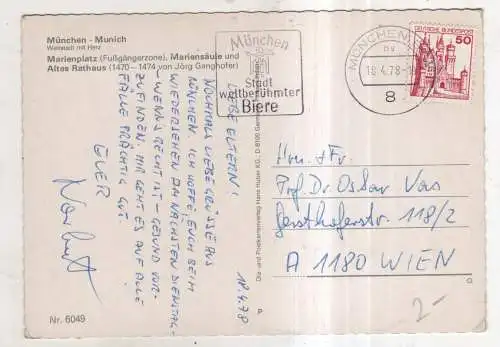 München - Munich
Weltstadt mit Herz
Marienplatz (Fußgängerzone), Mariensäule und
Altes Rathaus (1470 – 1474 von Jörg Ganghofer)
München
Stadt
weltberühmter
Biere
MÜNCHEN
18.4.78
8
DEUTSCHE BUNDESPOST
50
18.4.78
LIEBE ELTERN!
NOCHMALS LIEBE GRÜSSE AUS
MÜNCHEN. ICH HOFFE, EUCH BEIM
WIEDERSEHEN AM NÄCHSTEN DIENSTAG
- WENNS RECHT IST - GESUND VOR-
ZUFINDEN. MIR GEHT ES AUF ALLE
FÄLLE PRÄCHTIG GUT.
EUER
Norbert
Hrn. + Fr.
Prof. Dr. Oskar
118/2
A 1180 WIEN
2-
Nr. 6049